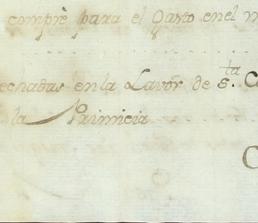 compré para el Gasto en el
echadas en la Lavór de S.ta C
la Primicia
C